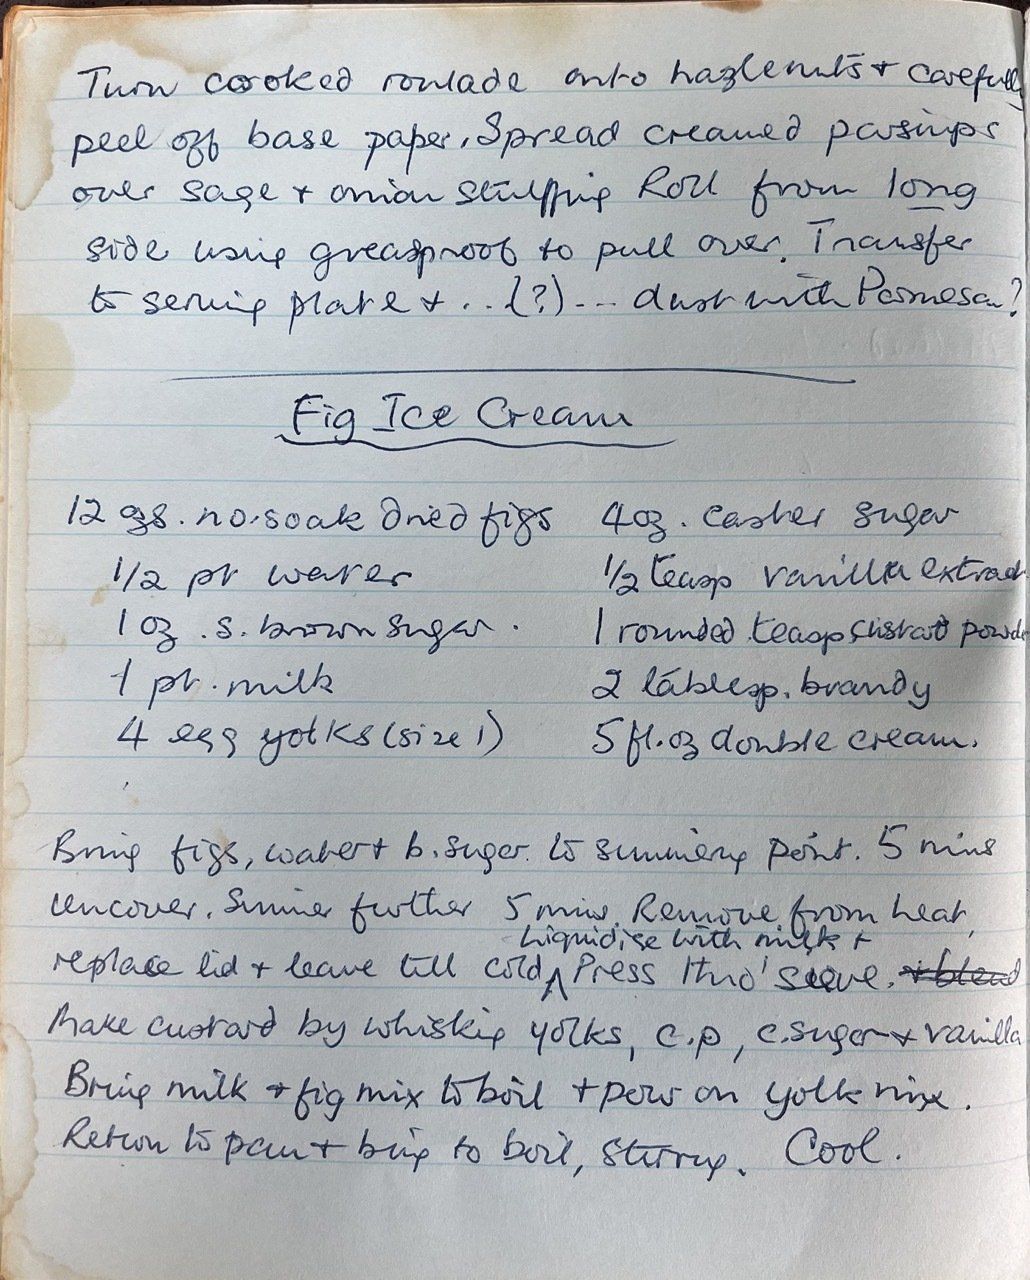 Turn cooked roulade onto hazlenuts + carefully
peel off base paper. Spread creamed parsnips
over sage + onion stuffing Roll from long
side using greaseproof to pull over. Transfer
to serving plate + .. (?) ... dust with Parmesan?
Fig Ice Cream
12 ozs. no-soak dried figs 4oz. caster sugar
1/2 pt water 1/2 teasp vanilla extract
1 oz .s. brown sugar. 1 rounded teasp custard powder
1 pt. milk 2 tablesp. brandy
4 egg yolks (size 1) 5 fl.oz double cream.
Bring figs, water + b. sugar. to simmering point. 5 mins
uncover. Simmer further 5 mins. Remove from heat,
Liquidise with milk +
replace lid + leave till cold ^ Press thro' sieve. + blend
Make custard by whisking yolks, c.p, c.sugar + vanilla
Bring milk + fig mix to boil + pour on yolk mix.
Return to pan + bring to boil, stirring. Cool.